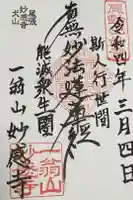 令和四年三月四日
斯人行世間
南無妙法蓮華経
能滅衆生闇
尾張
犬山
妙感寺
一翁山妙感寺
一翁山